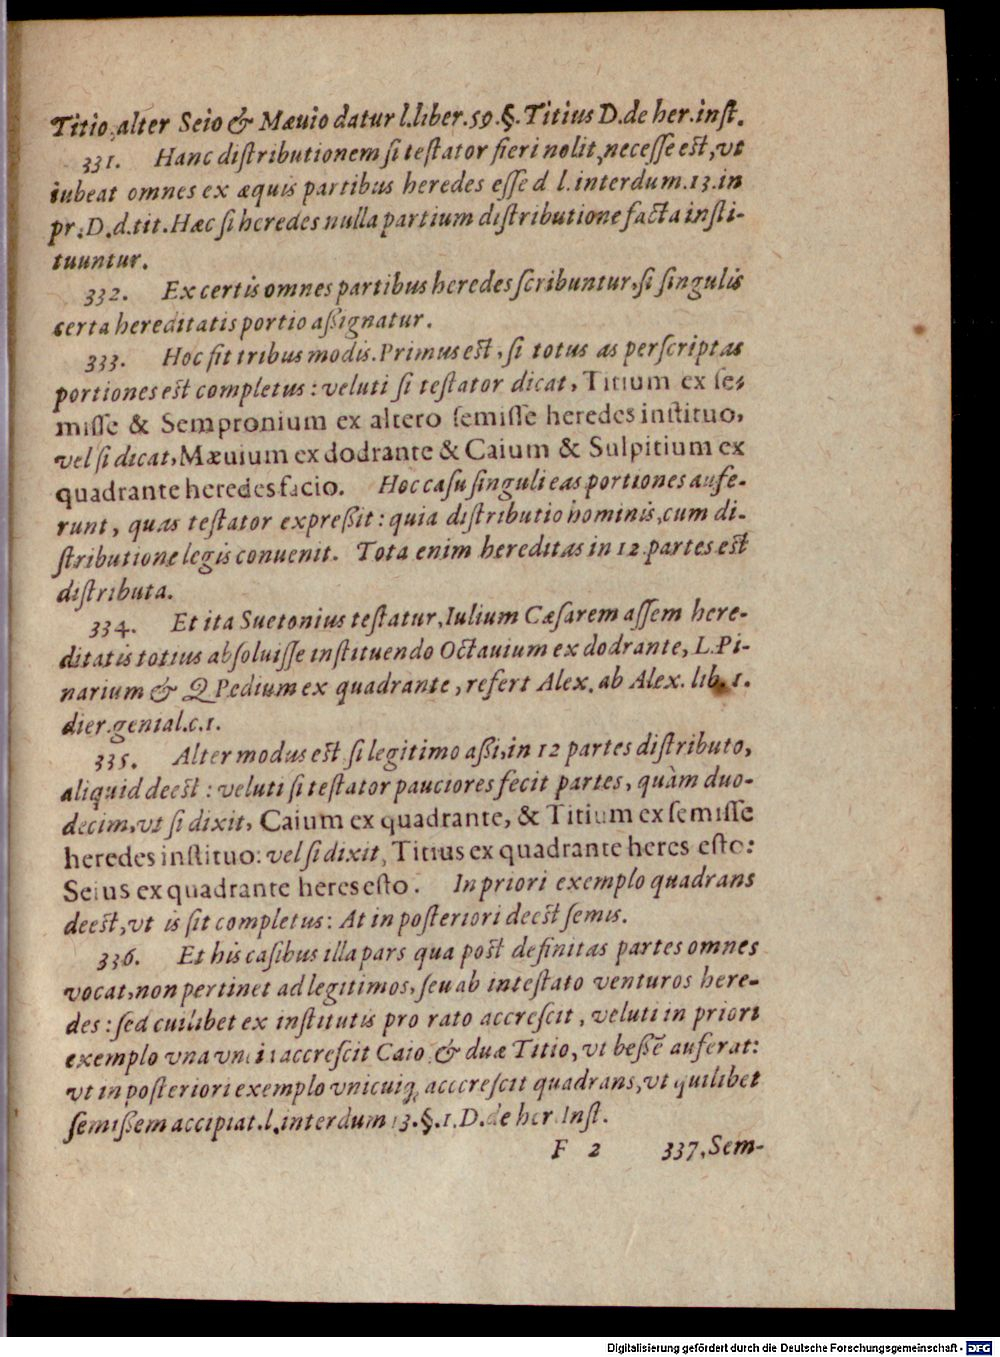 Titio, alter Seio & Mævio datur l.liber.59.§. Titius D.de her.inſt.
331. Hanc diſtributionem ſi teſtator fieri nolit, neceſſe eſt, vt
iubeat omnes ex æquis partibus heredes eſſe d l.interdum.13.in
pr.D.d.tit.Hæc ſi heredes nulla partium diſtributione facta inſti-
tuuntur.
332. Ex certis omnes partibus heredes ſcribuntur, ſi ſingulis
certa hereditatis portio aßignatur.
333. Hoc fit tribus modis. Primus eſt, ſi totus as perſcriptas
portiones eſt completus: veluti ſi teſtator dicat, Titium ex ſe-
miſſe & Sempronium ex altero ſemiſſe heredes inſtituo,
vel ſi dicat, Mæuium ex dodrante & Caium & Sulpitium ex
quadrante heredes facio. Hoc caſu ſinguli eas portiones aufe-
runt, quas teſtator expreßit: quia diſtributio hominis, cum di-
ſtributione legis conuenit. Tota enim hereditas in 12 partes eſt
diſtributa.
334. Et ita Suetonius teſtatur, Iulium Cæſarem aſſem here-
ditatis totius abſoluiſſe inſtituendo Octauium ex dodrante, L.Pi-
narium & Q Pedium ex quadrante, refert Alex. ab Alex. lib. 1.
dier.genial.c.1.
335. Alter modus eſt ſi legitimo aßi, in 12 partes diſtributo,
aliquid deeſt: veluti ſi teſtator pauciores fecit partes, quàm duo-
decim, vt ſi dixit, Caium ex quadrante, & Titium ex ſemiſſe
heredes inſtituo: vel ſi dixit, Titius ex quadrante heres eſto:
Seius ex quadrante heres eſto. In priori exemplo quadrans
deeſt, vt is ſit completus: At in poſteriori deeſt ſemis.
336. Et his caſibus illa pars qua poſt definitas partes omnes
vocat, non pertinet ad legitimos, ſeu ab inteſtato venturos here-
des: ſed cuilibet ex inſtitutis pro rato accreſcit, veluti in priori
exemplo vna vncia accreſcit Caio & duæ Titio, vt beßē auferat:
vt in poſteriori exemplo vnicuiq; acccreſcit quadrans, vt quilibet
ſemißem accipiat.l.interdum 13.§.1.D.de her Inſt.
F 2 337, Sem-
Digitalisierung gefördert durch die Deutsche Forschungsgemeinschaft - DFG